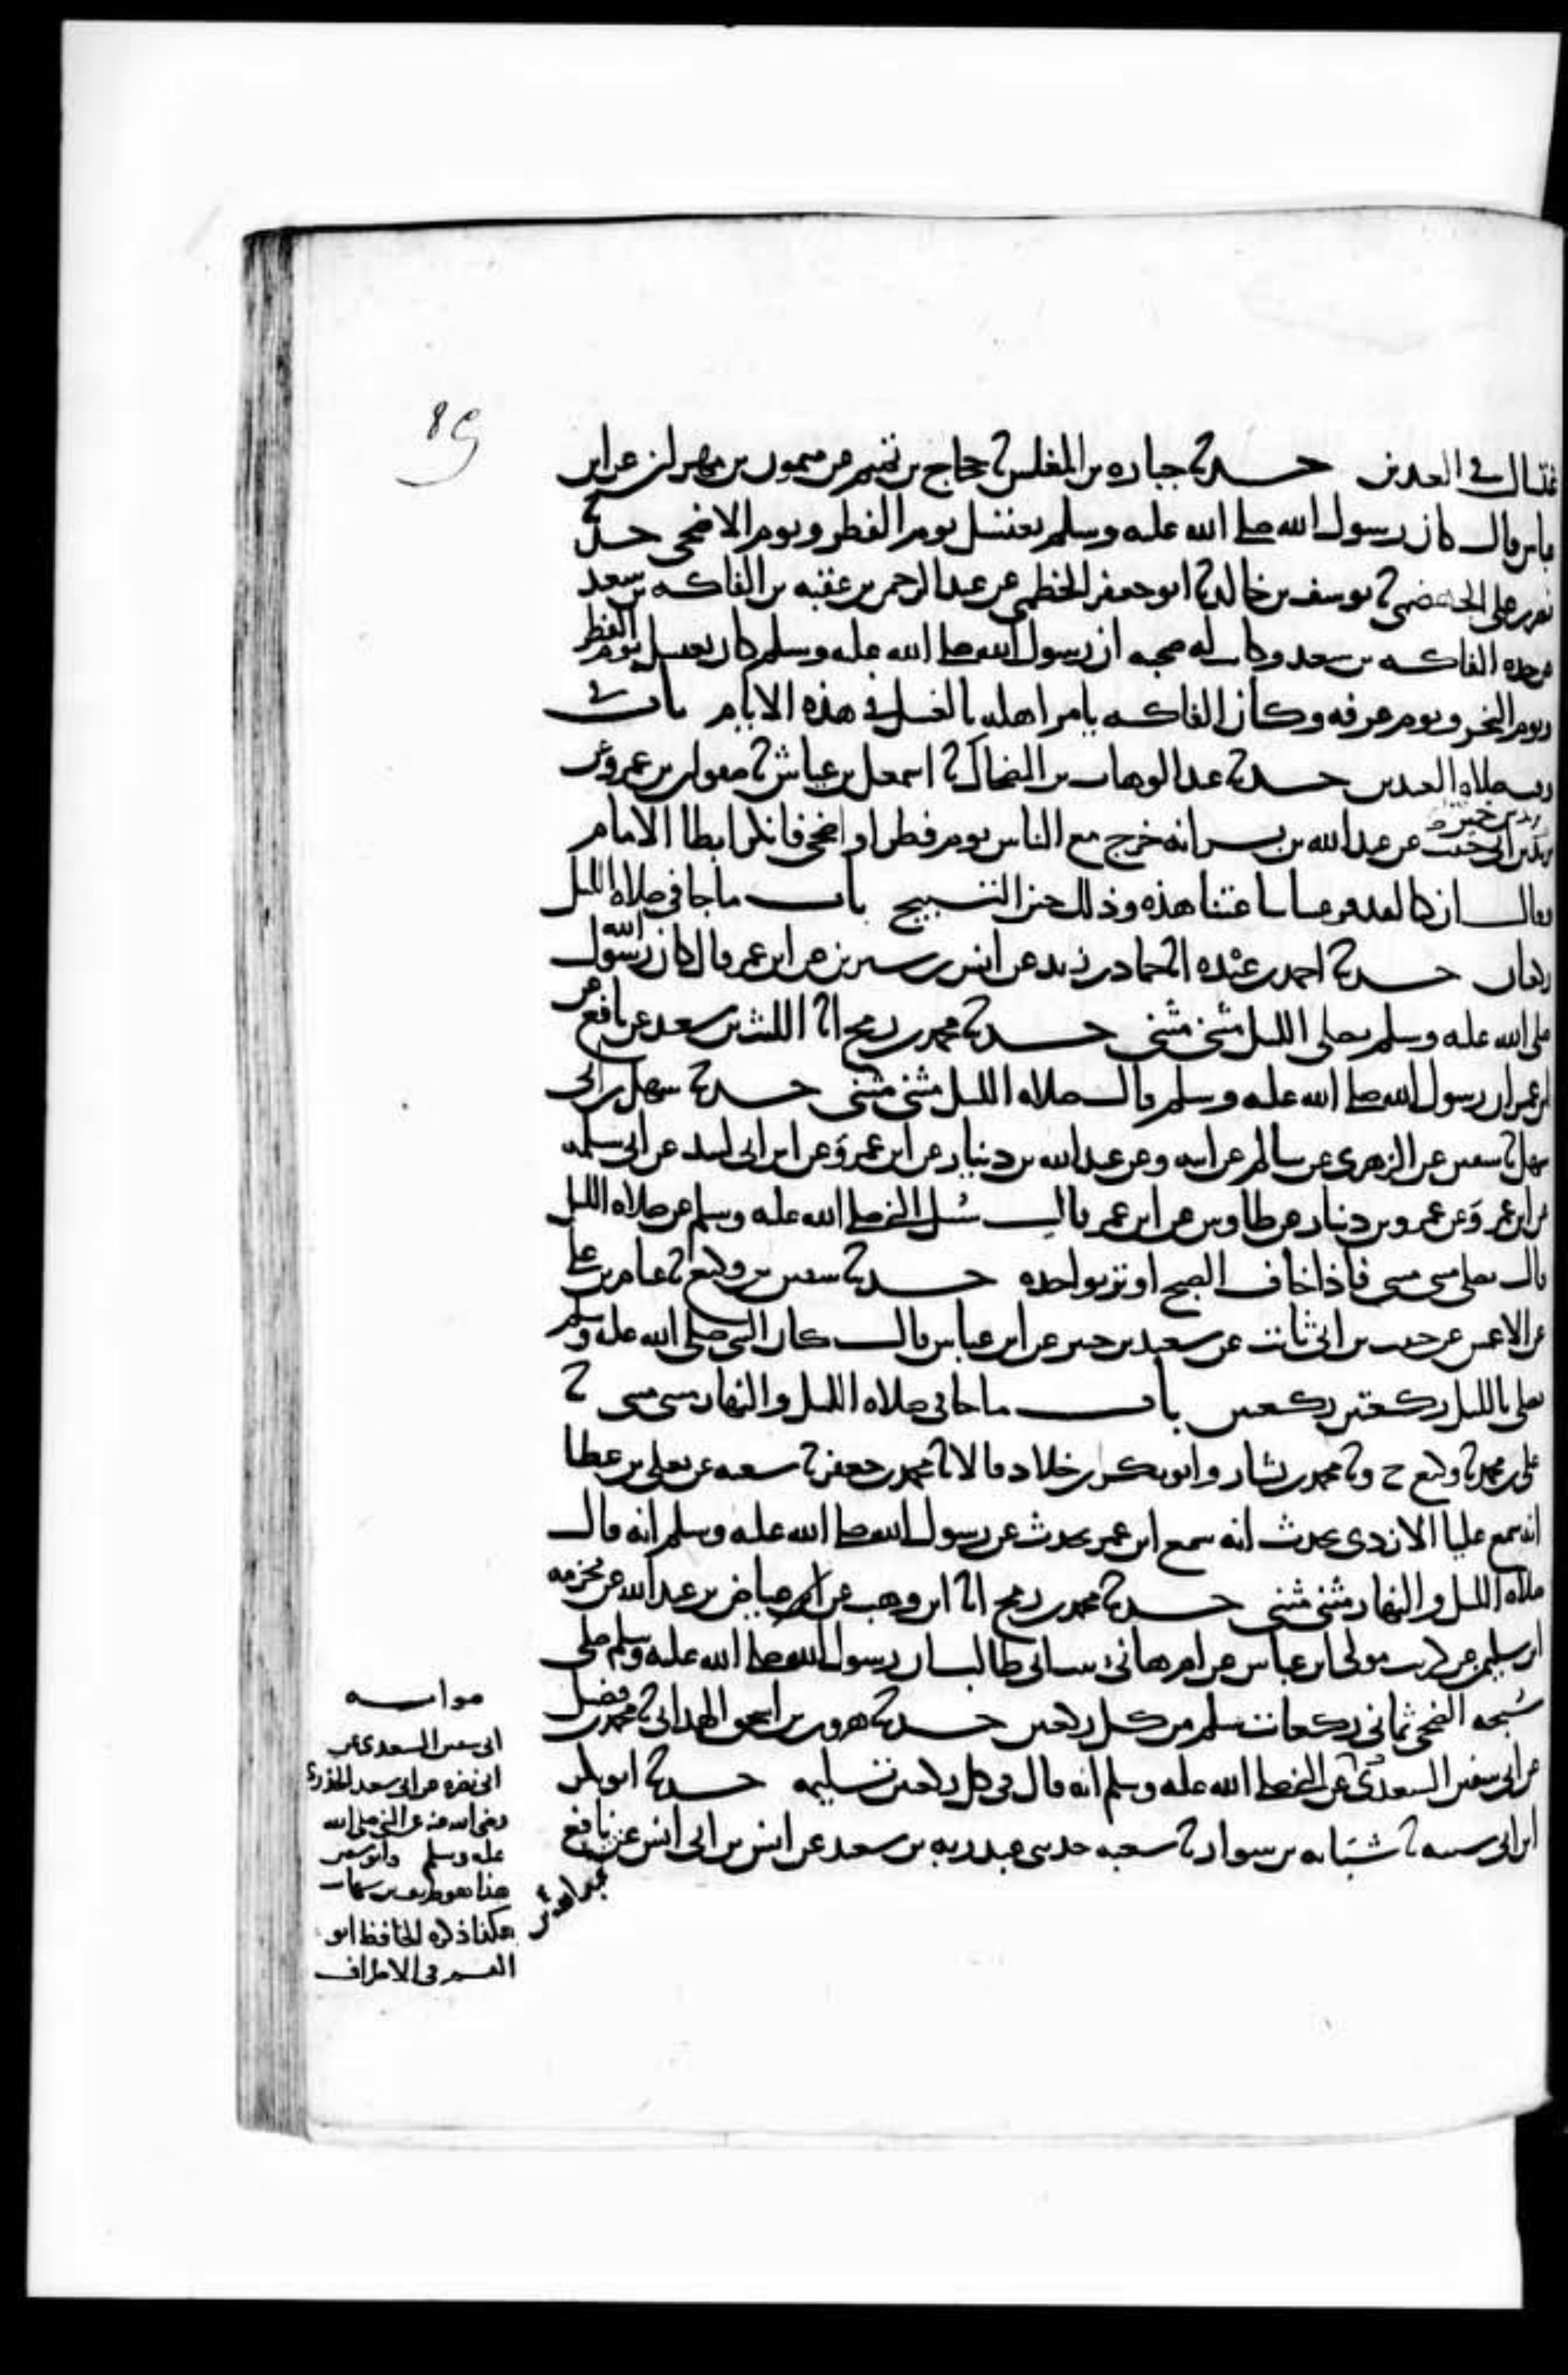 89
غتسال في العيدين حدثنا جباره بن المغلس ثنا حجاج بن تميم عن ميمون بن مهران عن ابن
عباس قال كان رسول الله صلى الله عليه وسلم يغتسل يوم الفطر ويوم الاضحى حدثنا
نصر بن على الجهضمي ثنا يوسف بن خالد ثنا ابو جعفر الخطمي عن عبد الرحمن بن عقبه بن الفاكه بن سعد
عن جده الفاكه بن سعد وكانت له صحبه ان رسول الله صلى الله عليه وسلم كان يغتسل يوم الفطر
ويوم النحر ويوم عرفه وكان الفاكه يامر اهله بالغسل في هذه الايام باب في
وقت صلاه العيدين حدثنا عبد الوهاب بن الضحاك ثنا اسمعيل بن عياش ثنا صفوان بن عمرو عن
يزيد بن خمير
عن عبد الله بن بسر انه خرج مع الناس يوم فطر او اضحى فانكر ابطا الامام
وقال ان كنا لقد فرغنا ساعتنا هذه وذلك حين التسبيح باب ما جا في صلاه الليل
ركعتين حدثنا احمد بن عبده انا حماد بن زيد عن انس بن سيرين عن ابن عمر قال كان رسول الله
صلى الله عليه وسلم يصلي الليل مثنى مثنى حدثنا محمد بن رمح انا الليث بن سعد عن نافع عن
ابن عمر ان رسول الله صلى الله عليه وسلم قال صلاه الليل مثنى مثنى حدثنا سهل بن ابي
سهل ثنا سفين عن الزهري عن سالم عن ابيه وعن عبد الله بن دينار عن ابن عمر وعن ابن ابي لبيد عن ابي سلمه
عن ابن عمر وعن عمرو بن دينار عن طاوس عن ابن عمر قال سئل النبي صلى الله عليه وسلم عن صلاه الليل
قال يصلي مثنى مثنى فاذا خاف الصبح اوتر بواحده حدثنا سفين بن وكيع ثنا عثام بن علي
عن الاعمش عن حبيب بن ابي ثابت عن سعيد بن جبير عن ابن عباس قال كان النبي صلى الله عليه وسلم
يصلي بالليل ركعتين ركعتين باب ما جا في صلاه الليل والنهار مثنى مثنى ثنا
علي بن محمد ثنا وكيع ح وثنا محمد بن بشار وابو بكر بن خلاد قالا ثنا محمد بن جعفر ثنا شعبه عن يعلى بن عطا
انه سمع عليا الازدي يحدث انه سمع ابن عمر يحدث عن رسول الله صلى الله عليه وسلم انه قال
صلاه الليل والنهار مثنى مثنى حدثنا محمد بن رمح انا ابن وهب عن عياض بن عبد الله عن مخرمه
ابن سليمن عن كريب مولى ابن عباس عن ام هانئ بنت ابي طالب ان رسول الله صلى الله عليه وسلم صلى
سبحه الضحى ثماني ركعات سلم من كل ركعتين حدثنا هرون بن اسحق الهمداني ثنا محمد بن فضيل
عن ابي سفين السعدي عن النبي صلى الله عليه وسلم انه قال في كل ركعتين تسليمه حدثنا ابو بكر
ابن ابي شيبه ثنا شبابه بن سوار ثنا شعبه حدثني عبد ربه بن سعيد عن انس بن ابي انس عن نافع
صوابه
ابي سفين السعدي عن
ابي نضره عن ابي سعيد الخدري
رضي الله عنه عن النبي صلى الله
عليه وسلم وابو سفين
هذا هو طريف بن شهاب
هكذا ذكره الحافظ ابو
القسم في الاطراف